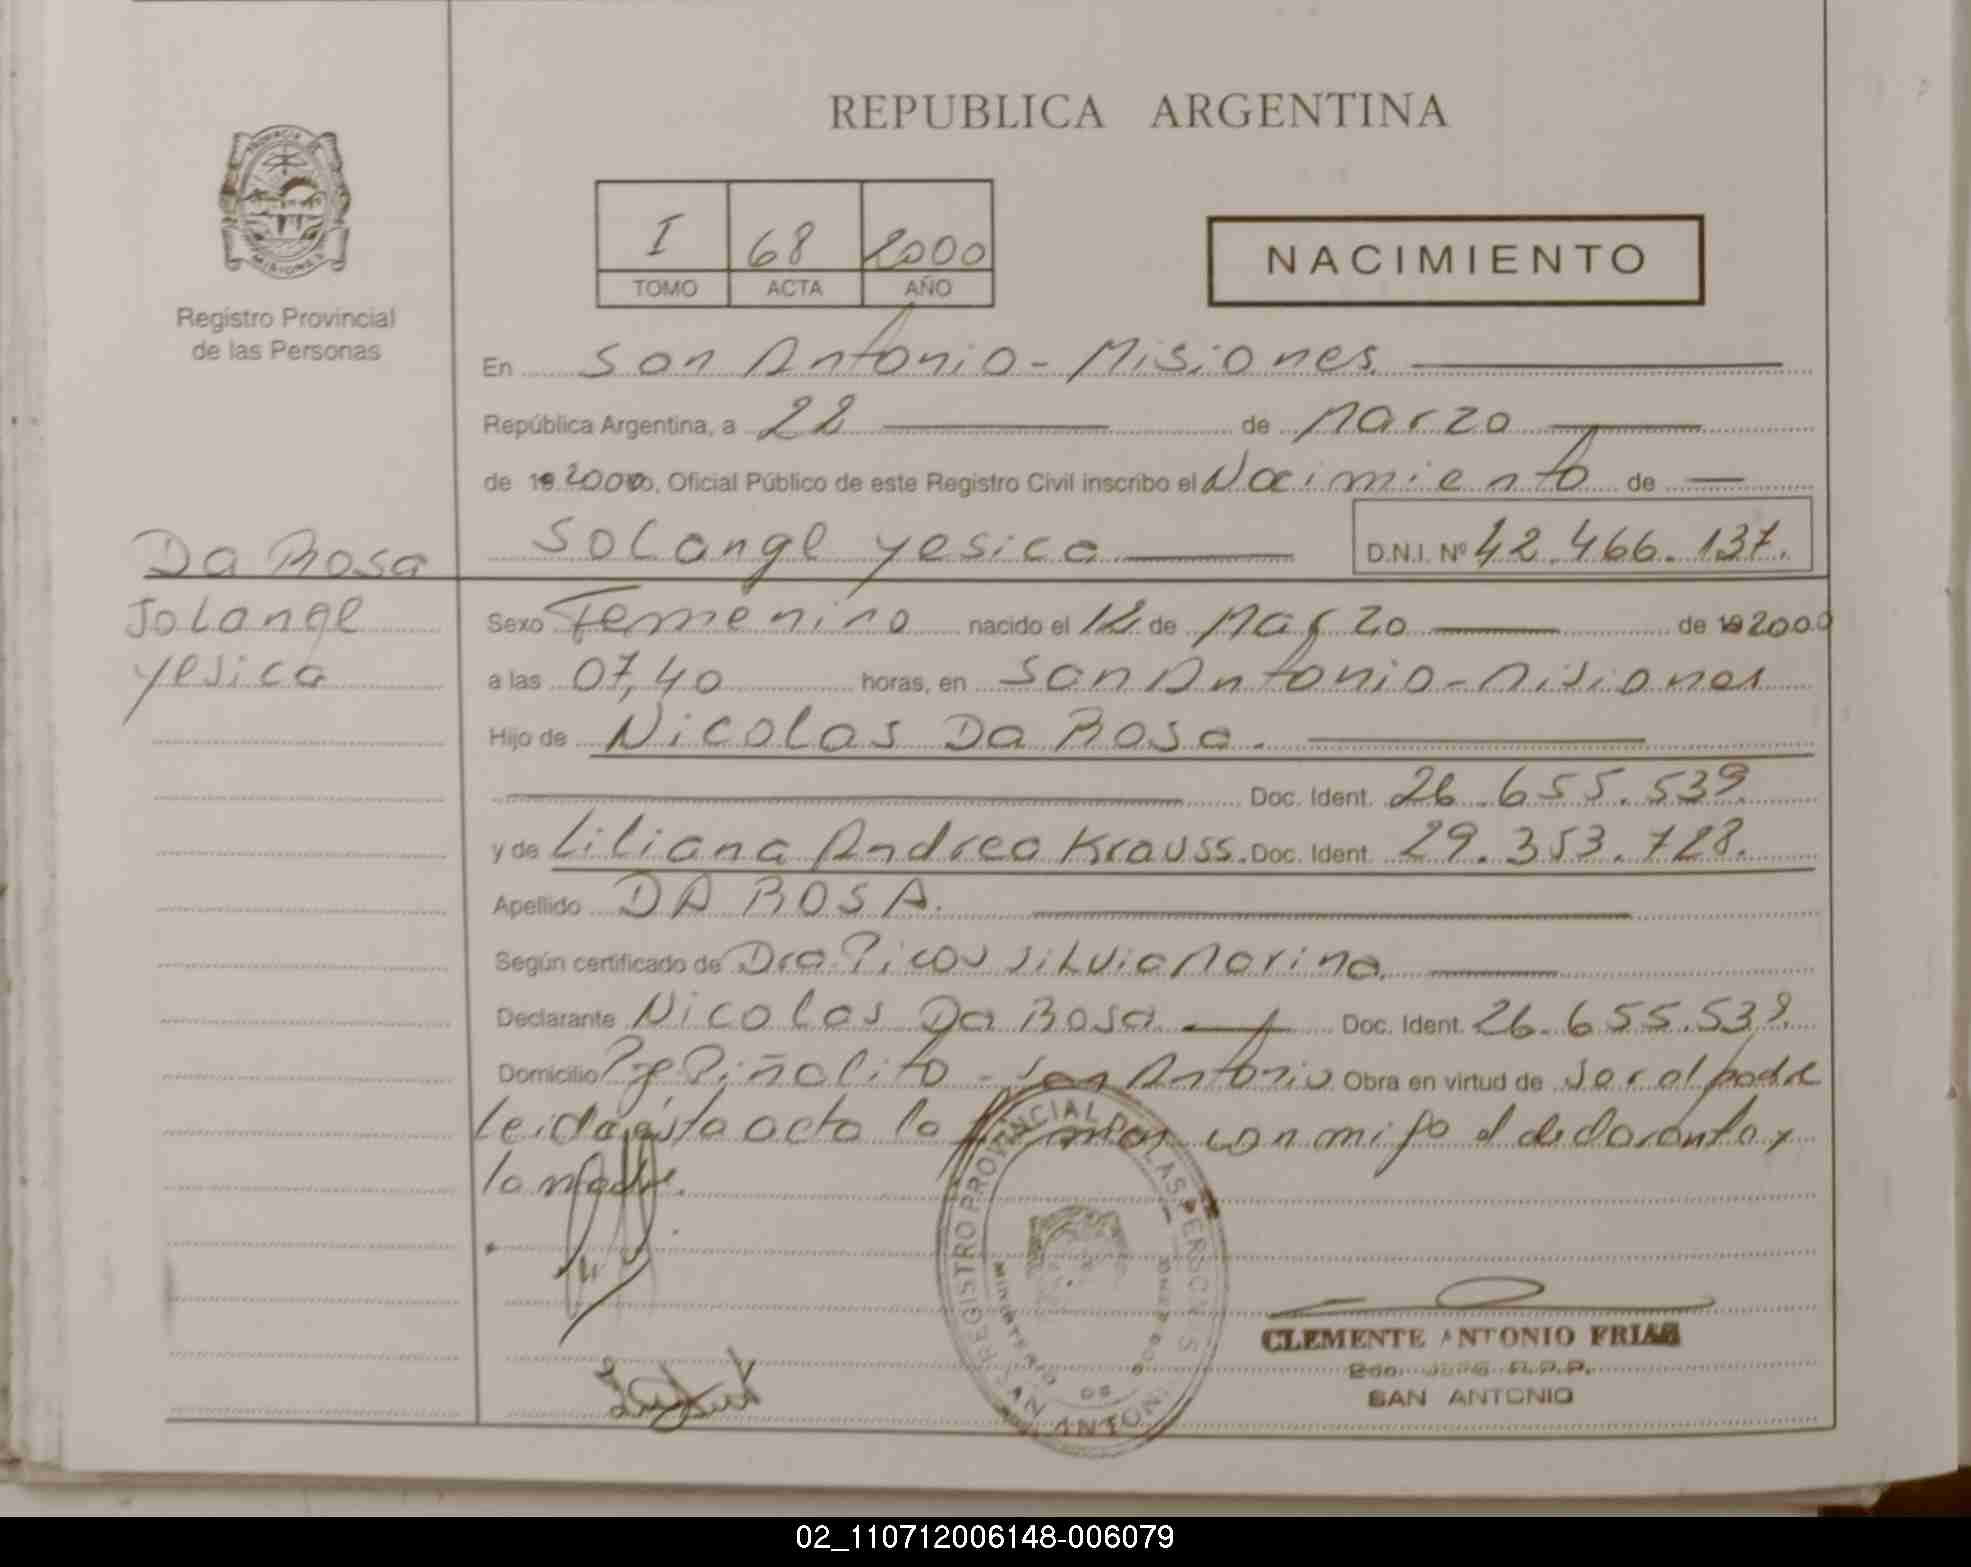 REPUBLICA ARGENTINA
PROVINCIA DE
MISIONES
Registro Provincial
de las Personas
I 68 2000
TOMO ACTA AÑO
NACIMIENTO
En San Antonio - Misiones
República Argentina, a 22 de Marzo
de 19 2000, Oficial Público de este Registro Civil inscribo el Nacimiento de
Solange Yesica D.N.I. Nº 42.466.137.
Da Rosa
Solange
Yesica
Sexo Femenino nacido el 12 de Marzo de 19 2000
a las 07,40 horas, en San Antonio - Misiones
Hijo de Nicolas Da Rosa.
Doc. Ident. 26.655.539
y de Liliana Andrea Krauss. Doc. Ident. 29.353.728.
Apellido DA ROSA.
Según certificado de Dra Picos Silvia Marina.
Declarante Nicolas Da Rosa Doc. Ident. 26.655.539.
Domicilio Pje Piñalito - San Antonio Obra en virtud de ser el padre
Leida esta acta la firman conmigo el declarante y
la madre.
REGISTRO PROVINCIAL DE LAS PERSONAS
MINISTERIO DE
SAN ANTONIO
CLEMENTE ANTONIO FRIAS
SAN ANTONIO
02_110712006148-006079